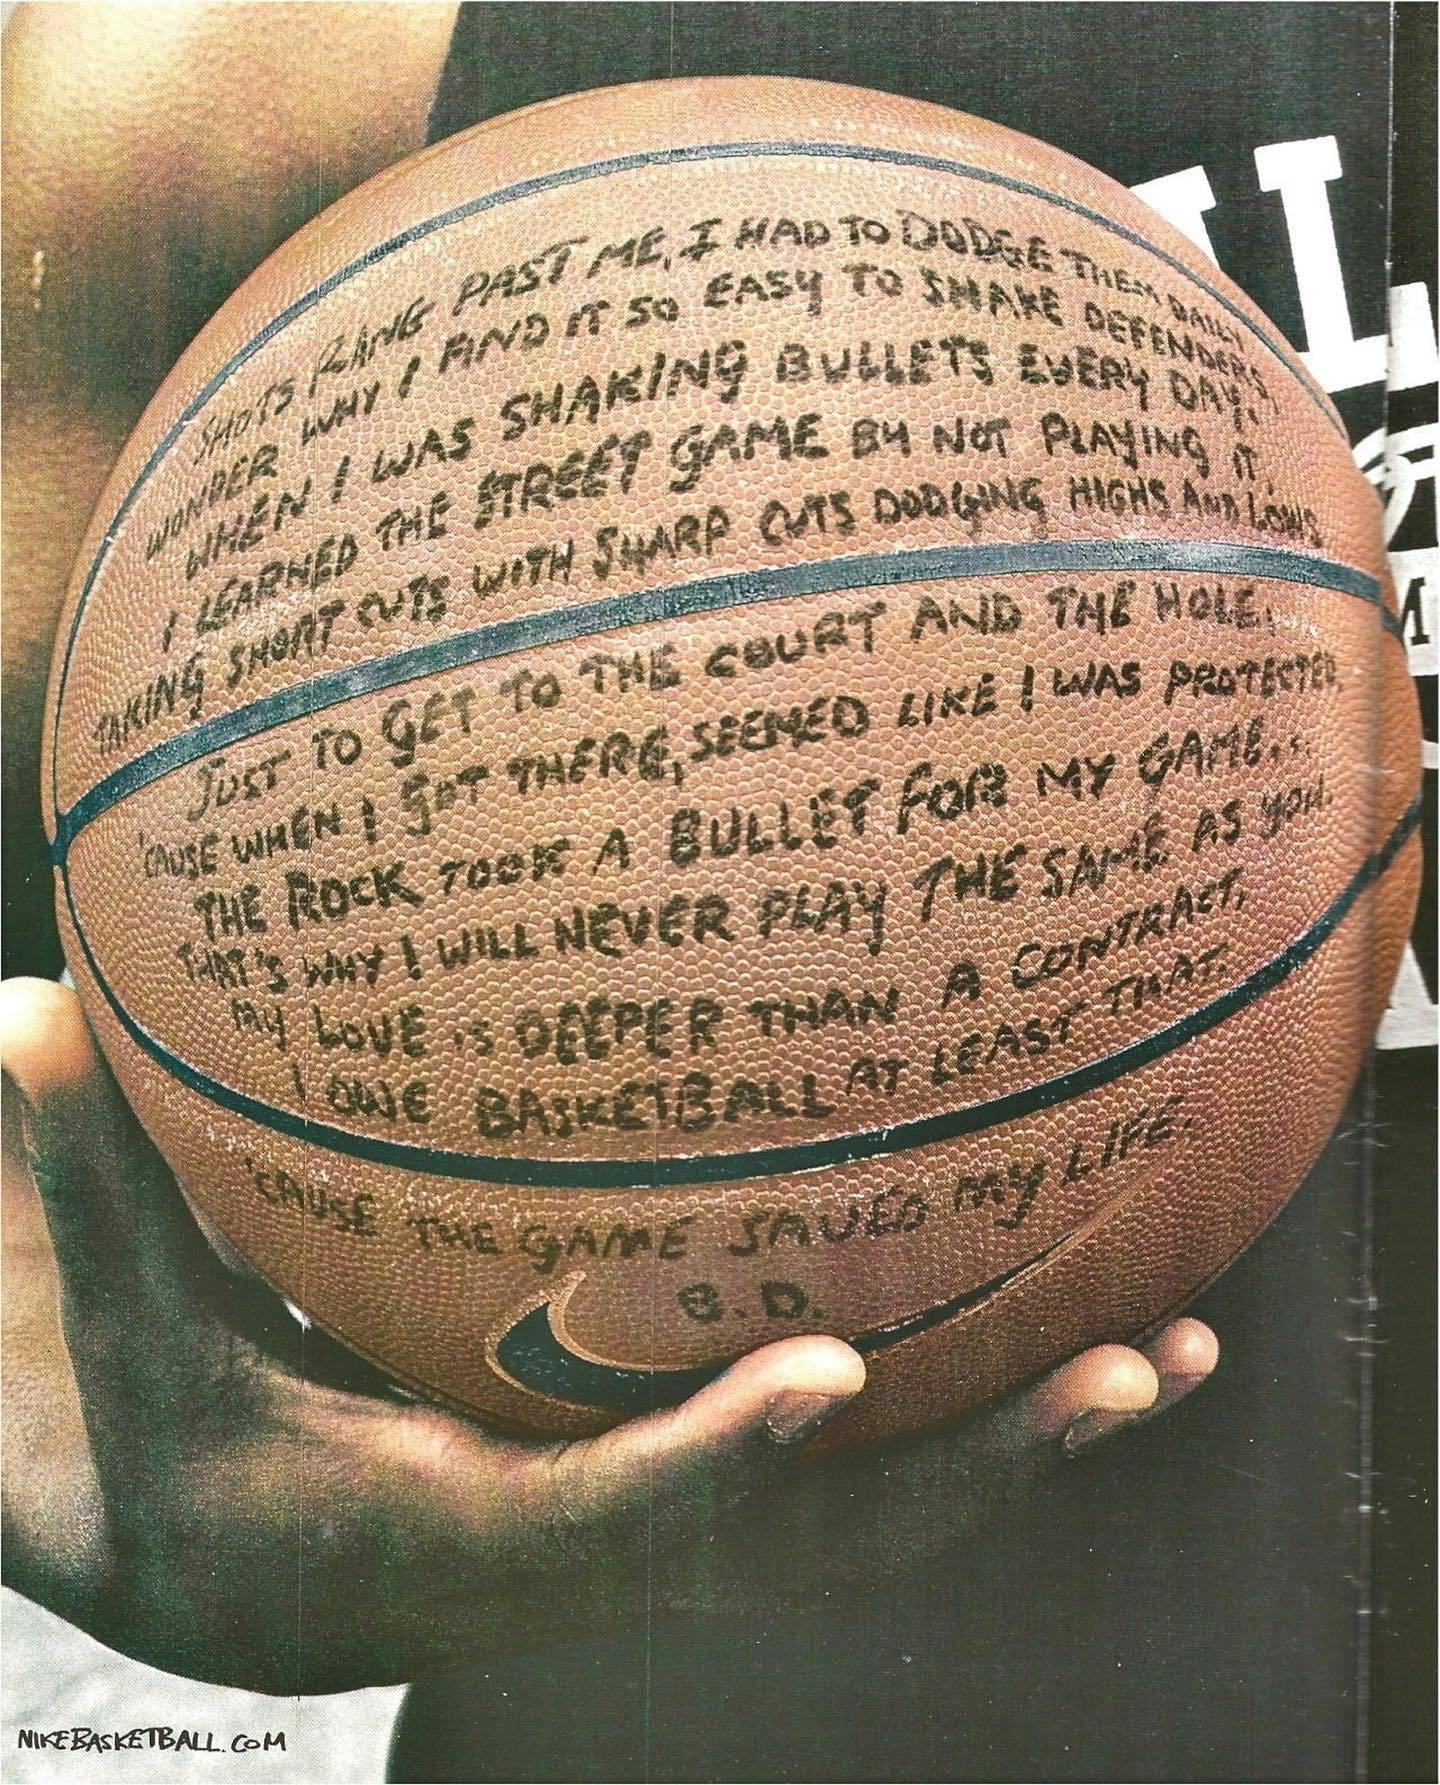 SHOTS RANG PAST ME, I HAD TO DODGE THEM DAILY
WONDER WHY I FIND IT SO EASY TO SHAKE DEFENDERS,
WHEN I WAS SHAKING BULLETS EVERY DAY.
I LEARNED THE STREET GAME BY NOT PLAYING IT,
TAKING SHORT CUTS WITH SHARP CUTS DODGING HIGHS AND LOWS
JUST TO GET TO THE COURT AND THE HOLE,
'CAUSE WHEN I GOT THERE, SEEMED LIKE I WAS PROTECTED,
THE ROCK TOOK A BULLET FOR MY GAME...
THAT'S WHY I WILL NEVER PLAY THE SAME AS YOU.
MY LOVE IS DEEPER THAN A CONTRACT,
I OWE BASKETBALL AT LEAST THAT.
'CAUSE THE GAME SAVED MY LIFE.
B.D.
NIKEBASKETBALL.COM